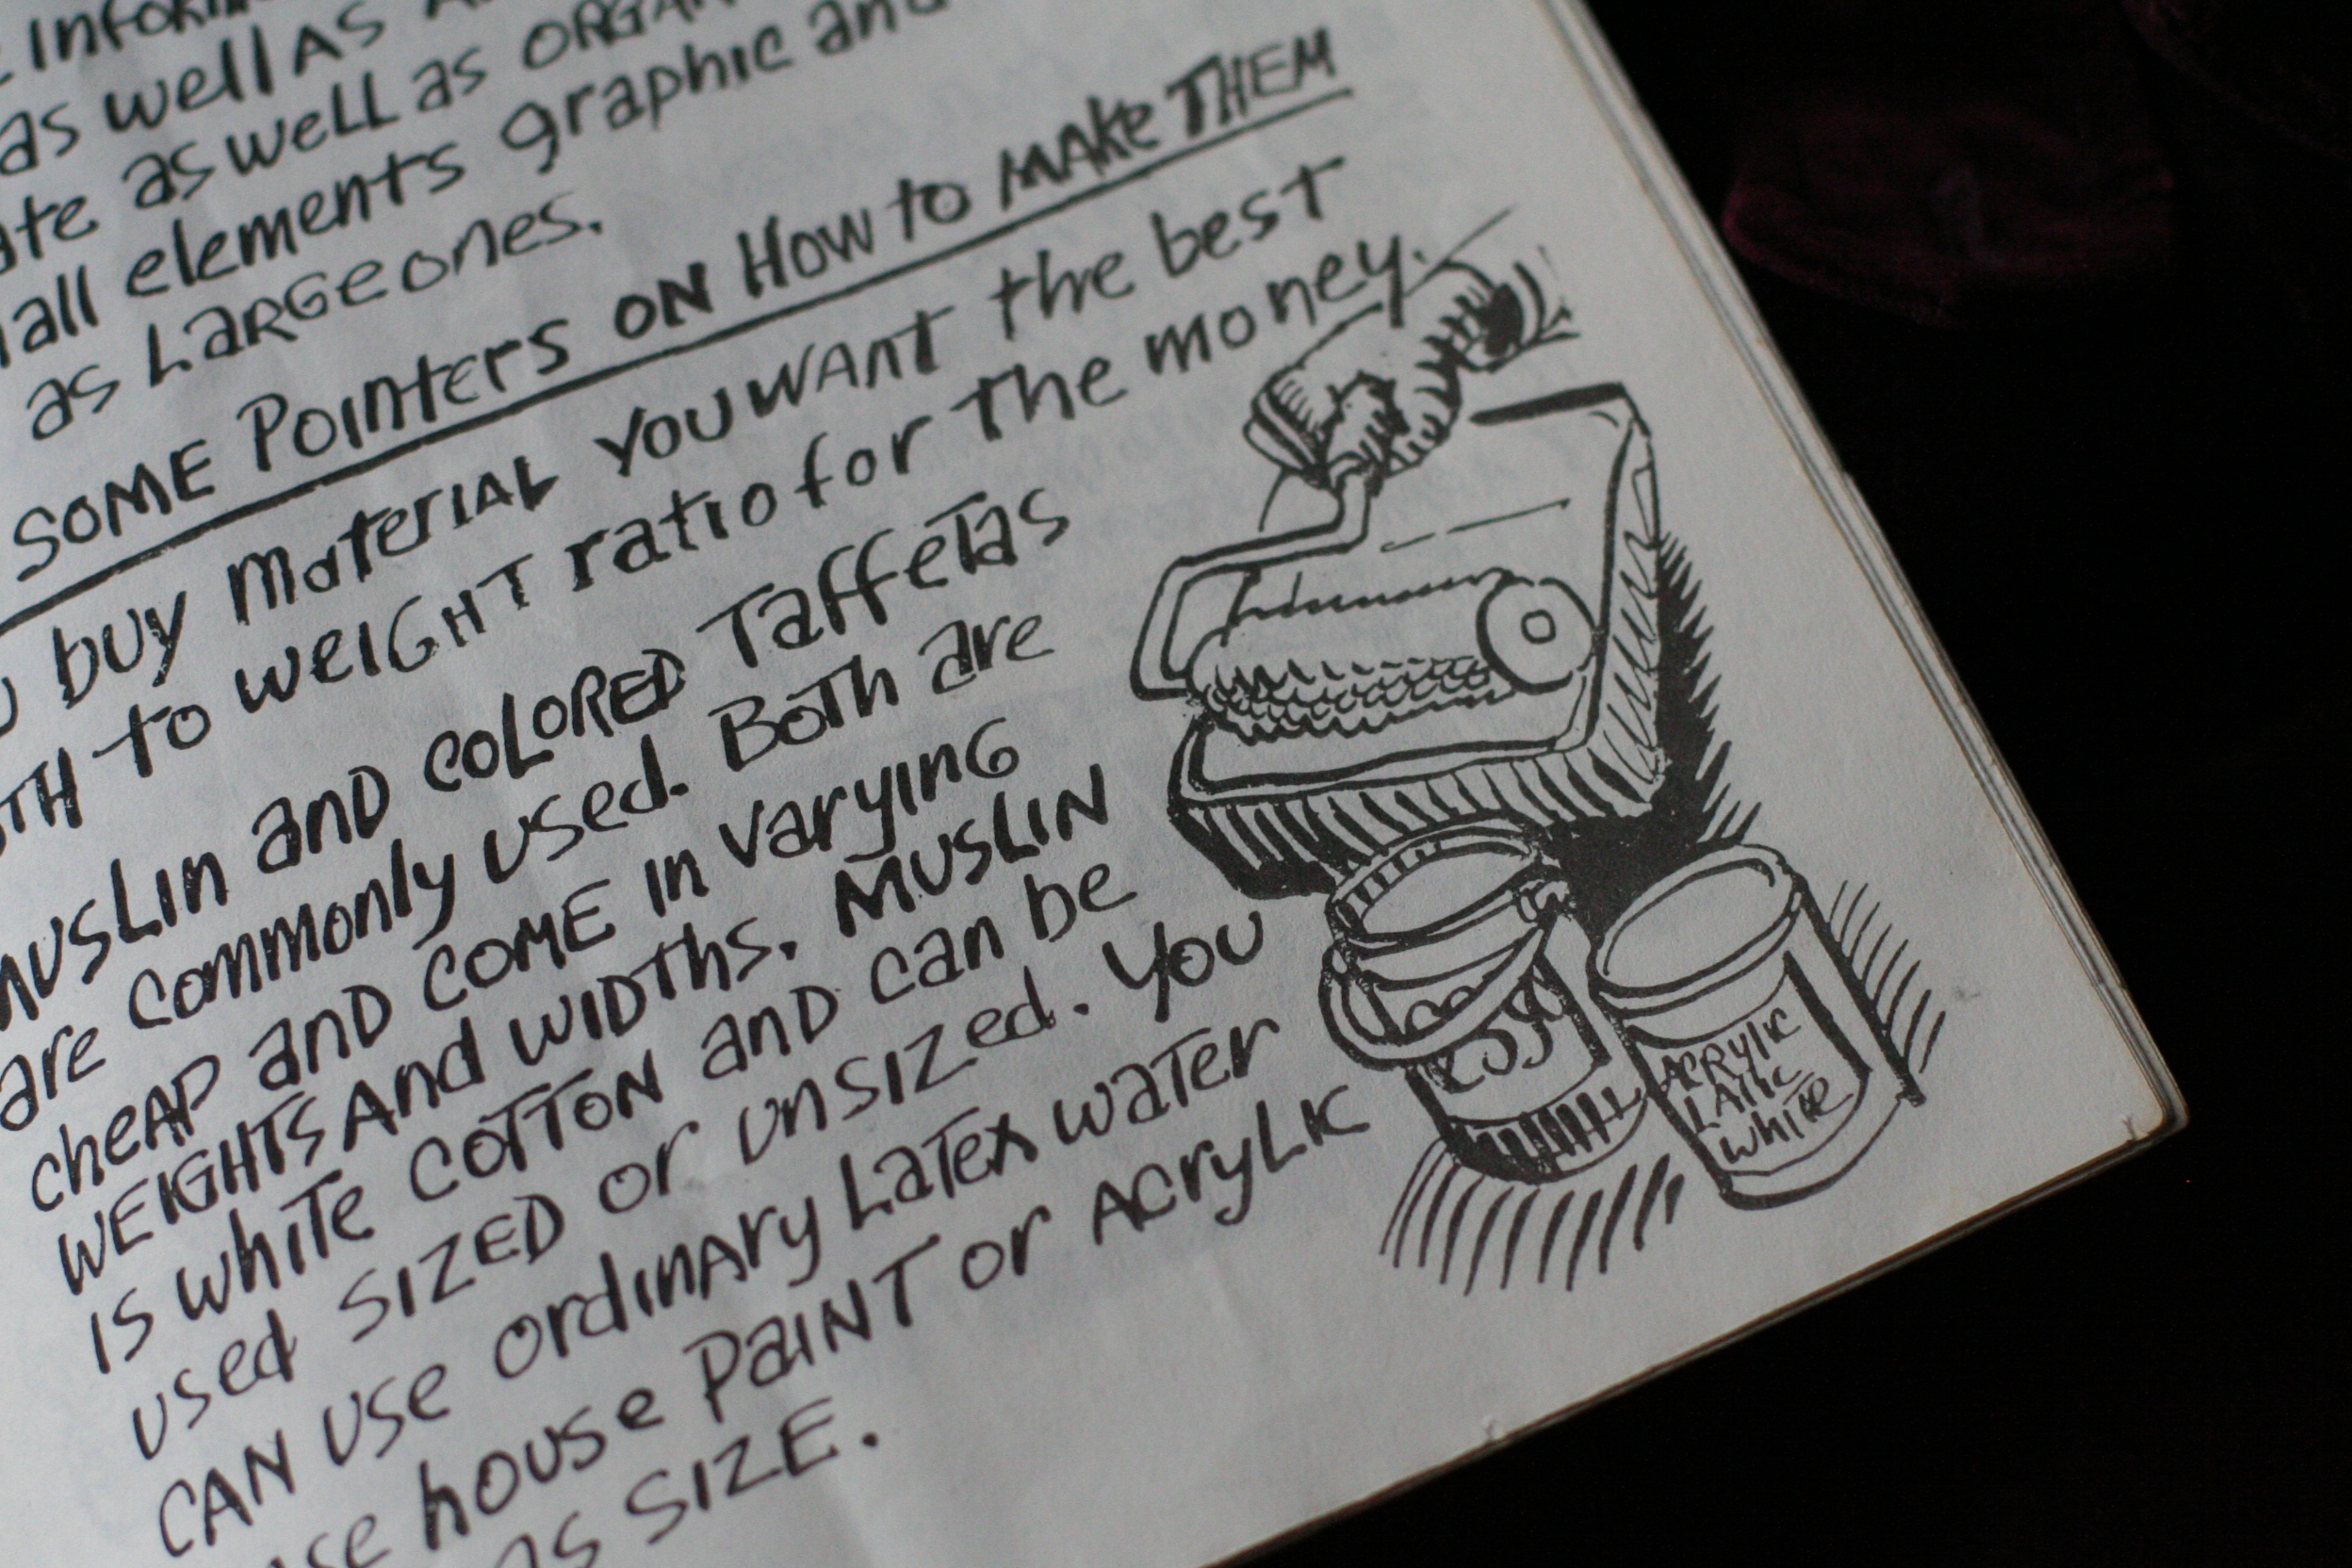 as well as
as well as ORGAN
elements graphic and
as LARGE ones.
SOME Pointers ON How to MAKE THEM
buy Material YOU WANT the best
to weIGHT ratio for the money.
MUSLIN and COLORED Taffetas
are commonly used. Both are
cheAP and COME in varying
WEIGHTS And WIDTHS. MUSLIN
IS white COTTON and can be
used SIZED or unsized. You
CAN use ordinary Latex water
house PAINT or Acrylic
as SIZE.
ACRYLIC
WhITE